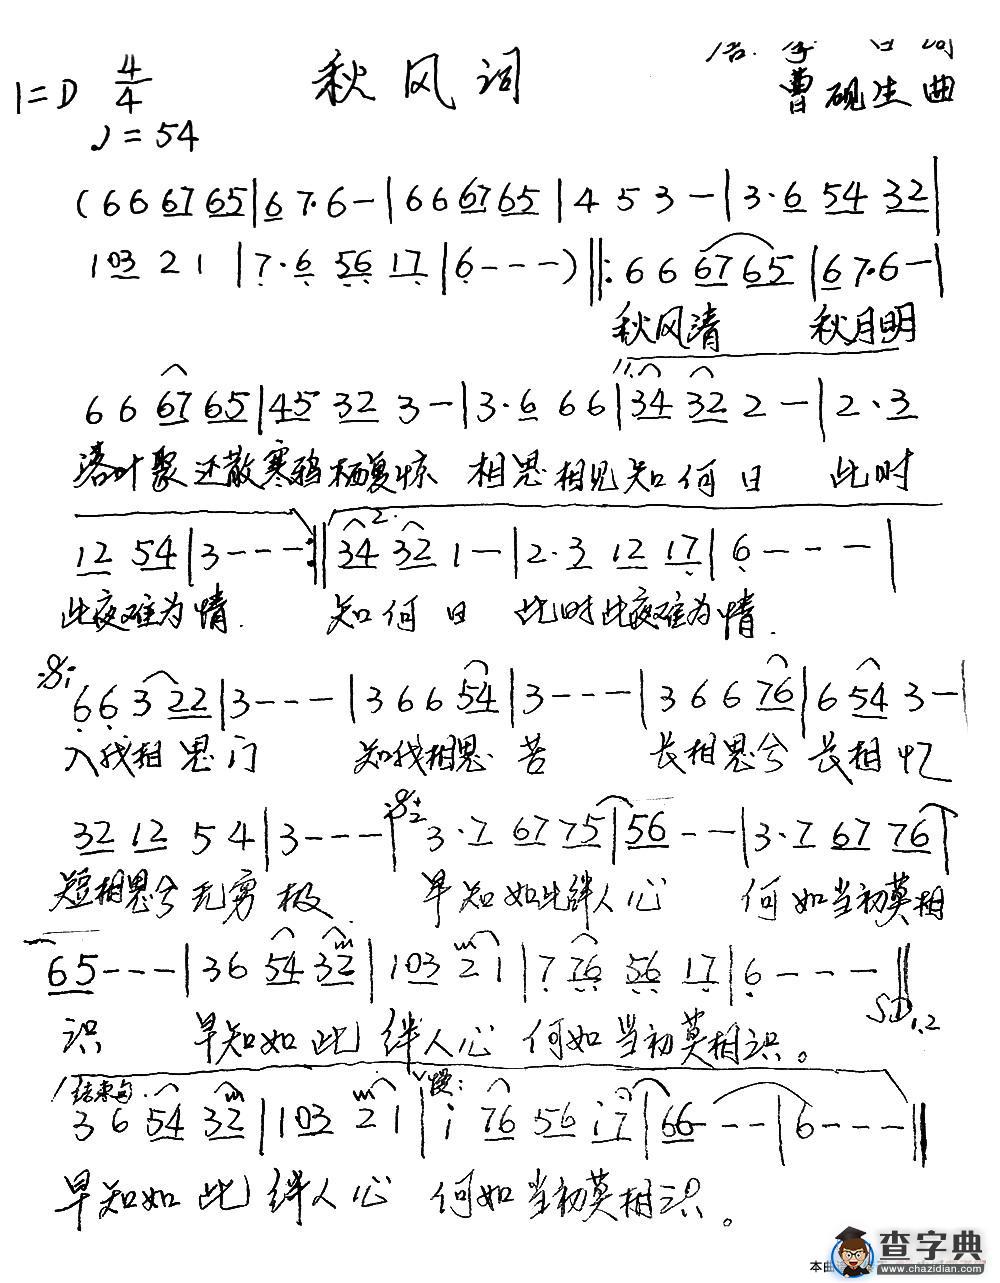 秋风词
李白词
1=D 4/4
曹砚生曲
♩=54
(6 6 67 65|6 7·6-|6 6 67 65|4 5 3-|3·6 54 32|
1 03 2 1|7·6 56 17|6---)‖:6 6 67 65|6 7·6-|
秋风清 秋月明
1.
6 6 67 65|45 32 3-|3·6 6 6|34 32 2-|2·3
落叶聚还散寒鸦栖复惊 相思相见知何日 此时
2.
12 54|3---:‖34 32 1-|2·3 12 17|6---|
此夜难为情. 知何日 此时此夜难为情.
𝄋1
6 6 3 22|3---|3 6 6 54|3---|3 6 6 76|6 54 3-|
入我相思门 知我相思苦 长相思兮长相忆
𝄋2
32 12 5 4|3---|3·7 67 75|56--|3·7 67 76|
短相思兮无穷极 早知如此绊人心 何如当初莫相
65---|36 54 32|1 03 2 1|7 76 56 17|6---‖
SD1.2
识 早知如此绊人心 何如当初莫相识。
结束句 慢:
3 6 54 32|1 03 2 1|i 76 56 i7|66--|6---‖
早知如此绊人心 何如当初莫相识。
查字典
www.chazidian.com
本曲